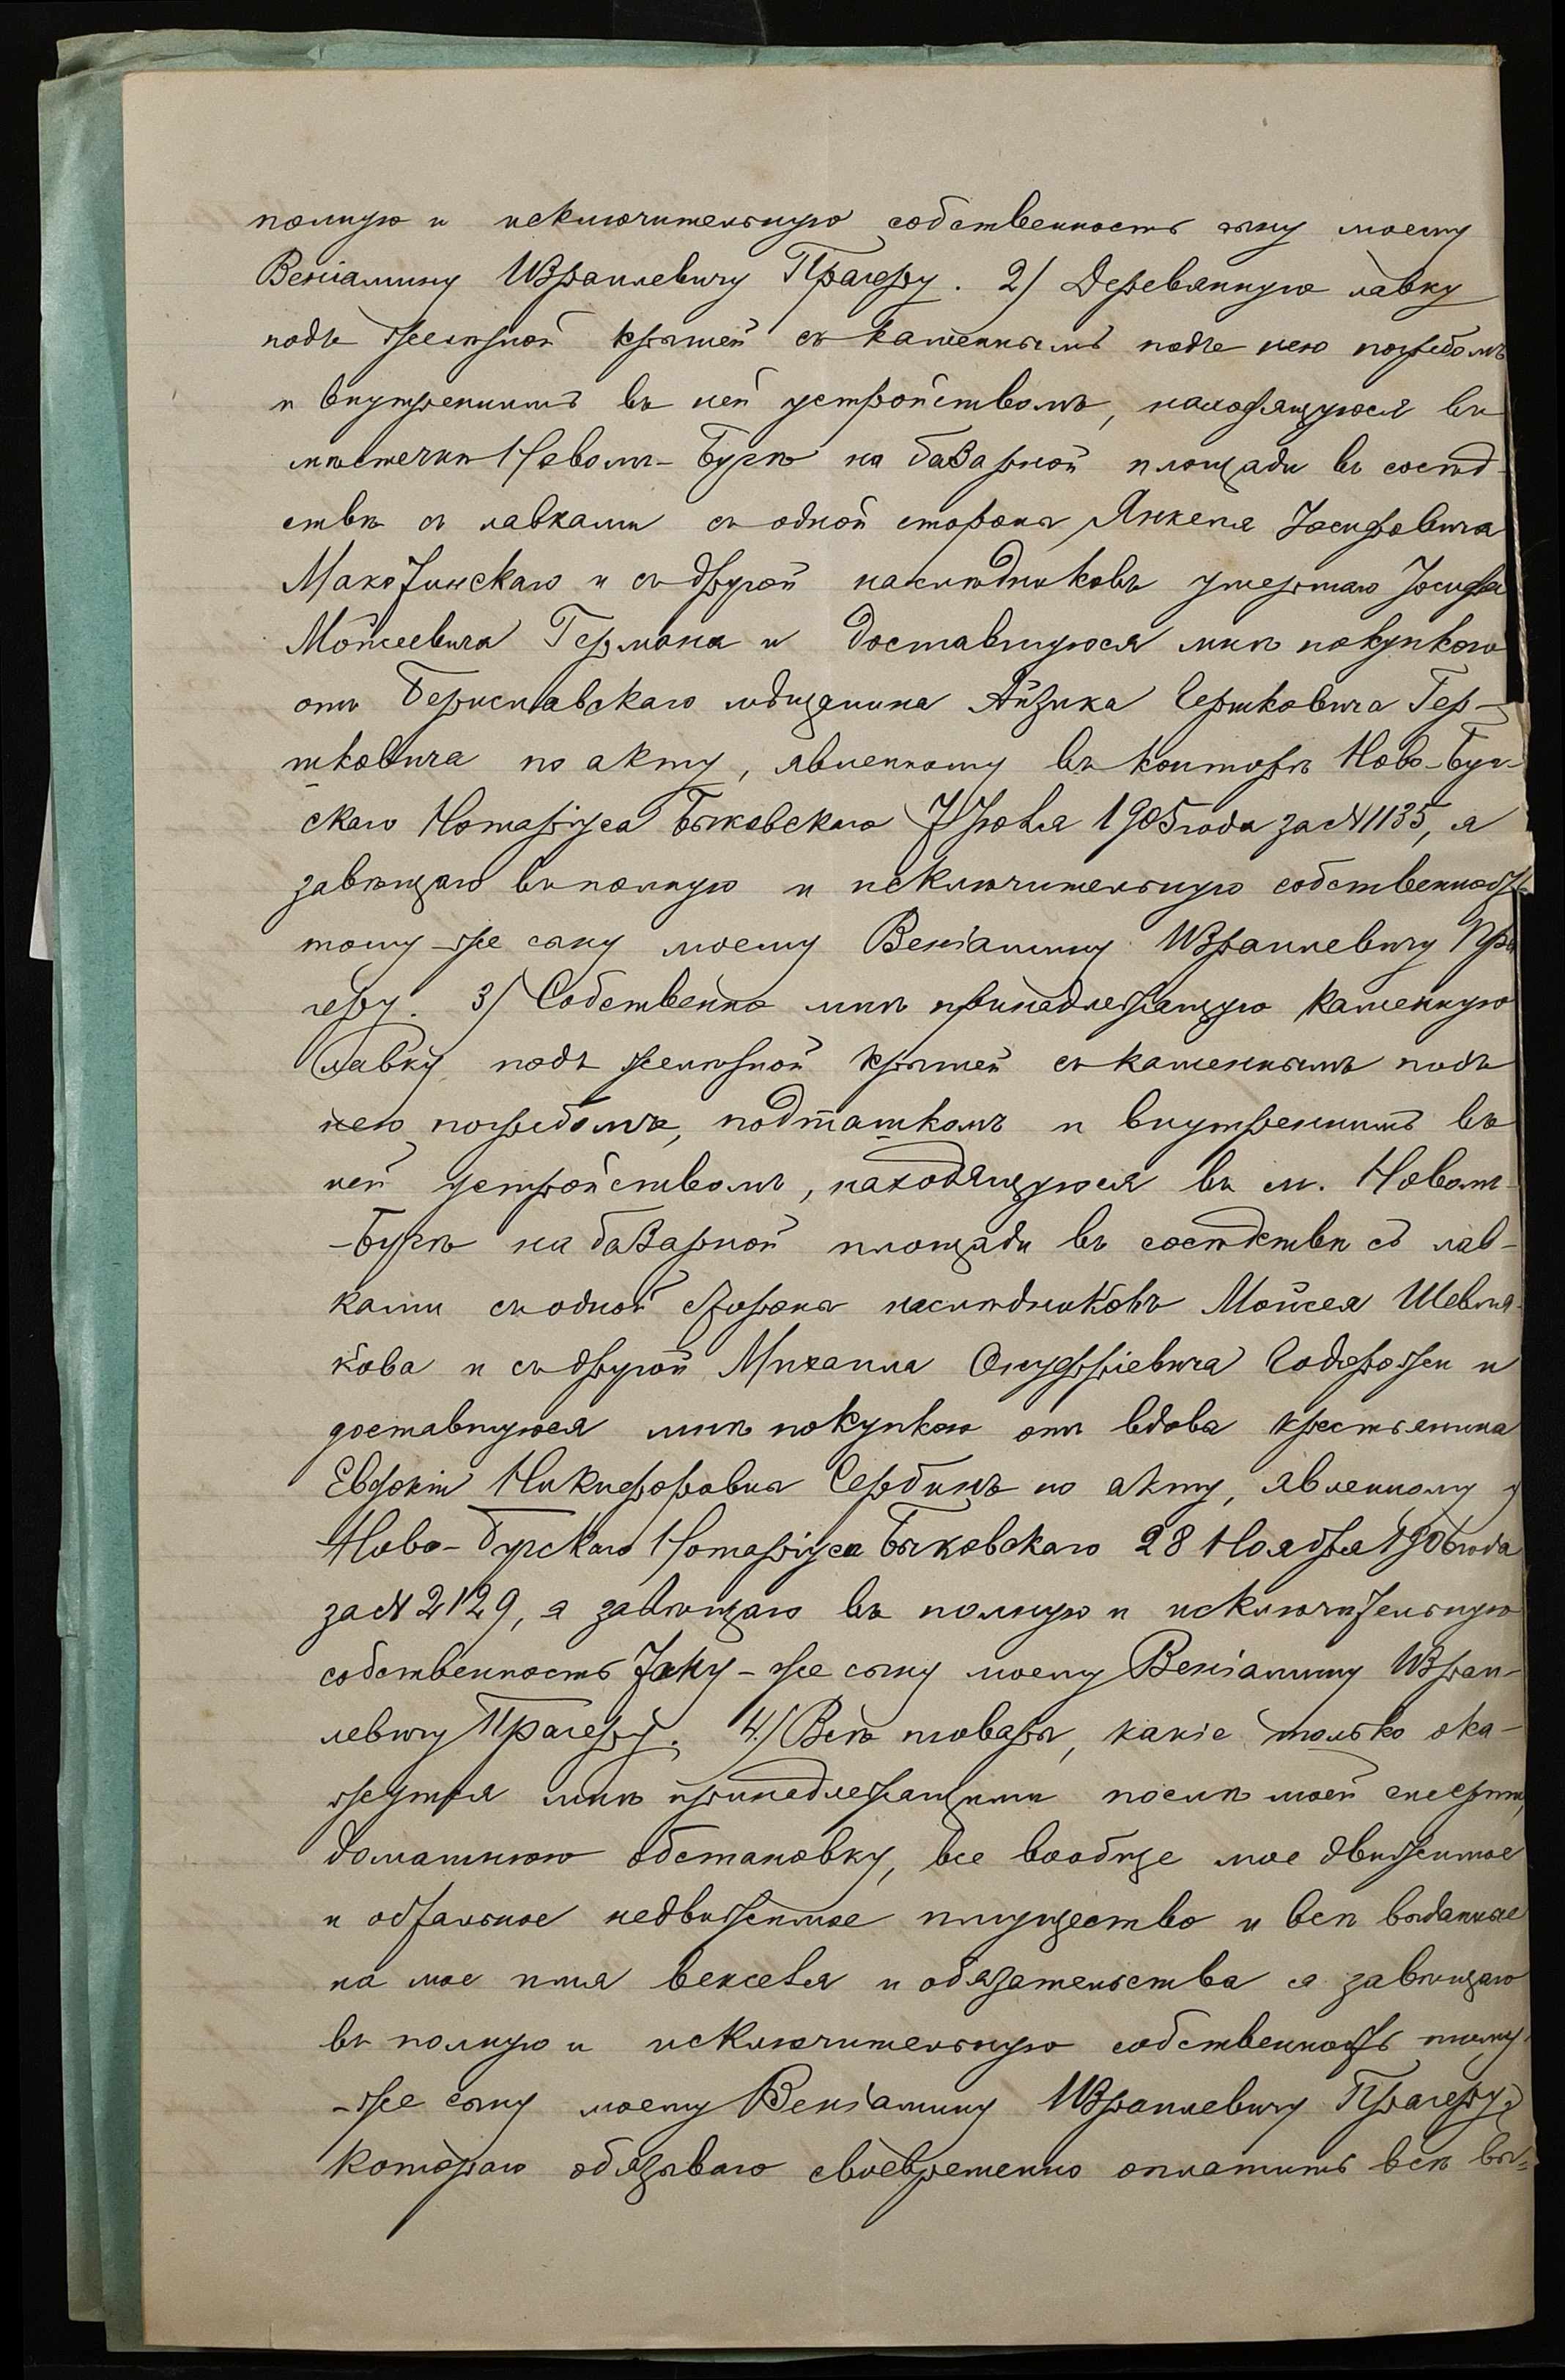 полную и исключительную собственность сыну моему
Веніамину Израилевичу Прагеру. 2) Деревянную лавку
подъ желѣзной крышей съ каменнымъ подъ нею погребомъ
и внутреннимъ въ ней устройствомъ, находящуюся въ
мѣстечкѣ Новомъ-Бугѣ на базарной площади въ сосѣд-
ствѣ съ лавками съ одной стороны Янкеля Іосифовича
Макотинскаго и съ другой наслѣдниковъ умершаго Іосифа
Мойсеевича Германа и доставшуюся мнѣ покупкою
отъ Бериславскаго мѣщанина Айзика Гершковича Гер-
шковича по акту, явленному въ конторѣ Ново-Буг-
скаго Нотаріуса Быковскаго 7 Іюля 1905 года за № 1135, я
завѣщаю въ полную и исключительную собственность
тому-же сыну моему Веніамину Израилевичу Пра
геру. 3) Собственно мнѣ принадлежащую каменную
лавку подъ желѣзной крышей съ каменнымъ подъ
нею погребомъ, подташкомъ и внутреннимъ въ
ней устройствомъ, находящуюся въ м. Новомъ-
-Бугѣ на базарной площади въ сосѣдствѣ съ лав-
ками съ одной стороны наслѣдниковъ Мойсея Шевля-
кова и съ другой Михаила Онуфріевича и
доставшуюся мнѣ покупкою отъ вдовы крестьянина
Евдокіи Никифоровны Сербинъ по акту, явленному у
Ново-Бугскаго Нотаріуса Быковскаго 28 Ноября 1906 года
за № 2129, я завѣщаю въ полную и исключительную
собственность тому-же сыну моему Веніамину Израи-
левичу Прагеру. 4) Всѣ товары, какіе только ока-
жутся мнѣ принадлежащими послѣ моей смерти,
домашнюю обстановку, все вообще мое движимое
и остальное недвижимое имущество и всѣ выданные
на мое имя векселя и обязательства я завѣщаю
въ полную и исключительную собственность тому-
-же сыну моему Веніамину Израилевичу Прагеру,
котораго обязываю своевременно оплатить всѣ вы-